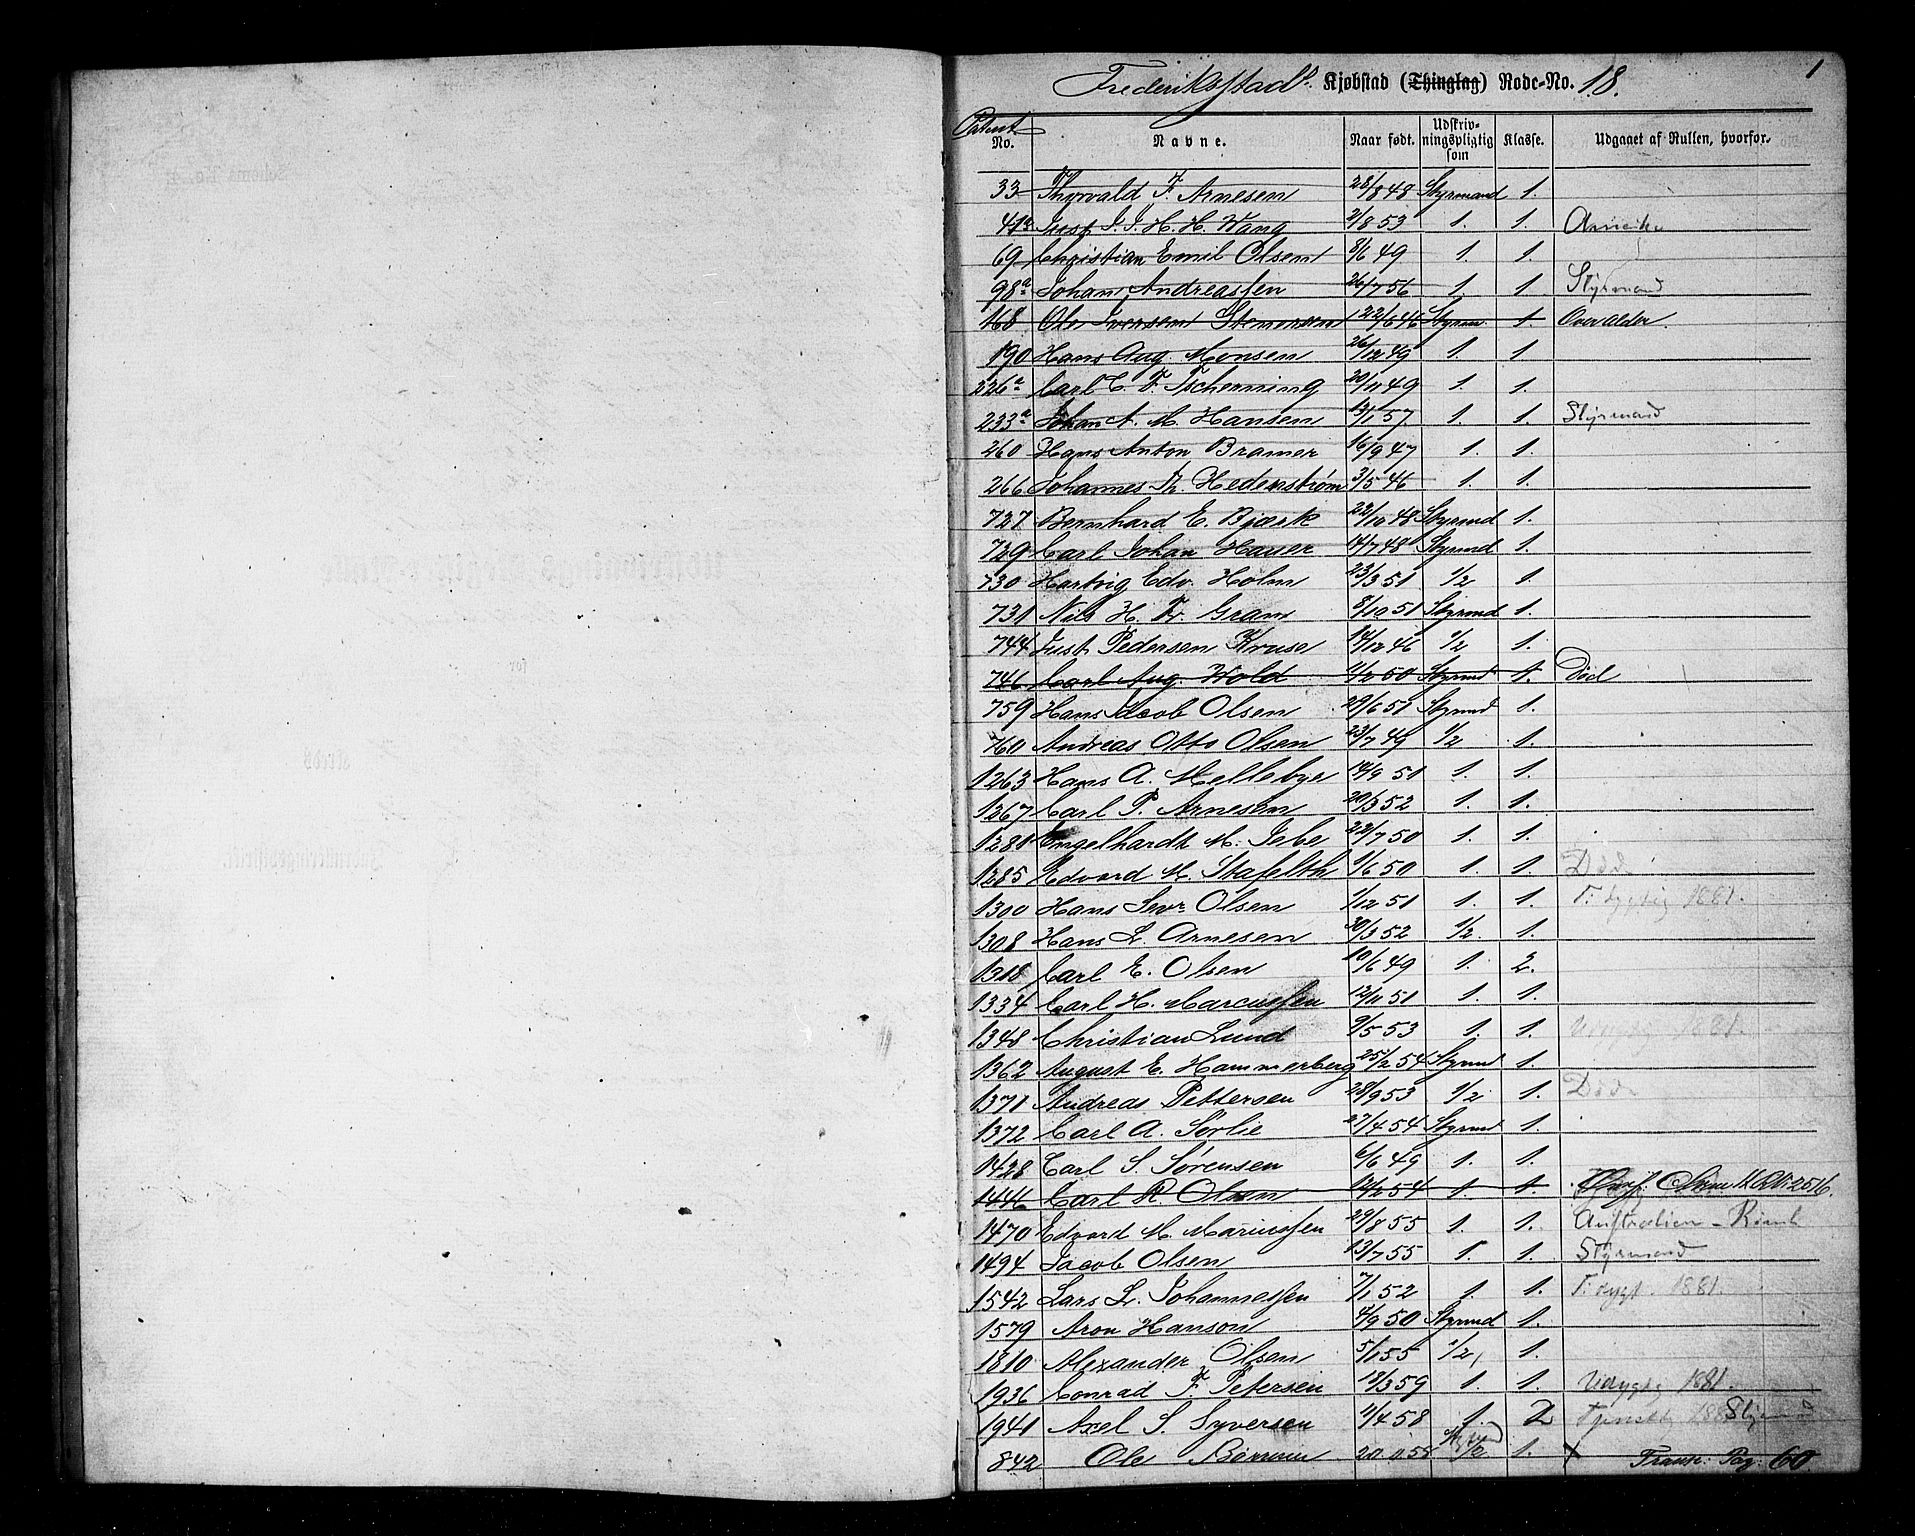 1
Frederiksstads Kjøbstad (Thinglag) Rode-No. 18.
Patent No. Navne. Naar født. Udskrivningspligtig som Klasse. Udgaaet af Rullen, hvorfor.
33 Thorvald F. Arnesen 28/8 48 Styrmand 1.
41a J. J. H. H. Wang 2/8 53 1. 1. Amerika
69 Christian Emil Olsen 8/6 49 1. 1.
98a Johan Andreassen 26/7 56 1. 1. Styrmand
168 Ole Iversen 22/6 46 Styrm. 1. Over alder.
190 Hans Aug. Monsen 26/12 49 1. 1
226a Carl C. F. Tscherning 20/11 49 1. 1.
233a Johan A. M. Hansen 13/1 57 1. 1. Styrmand
260 Hans Anton Bramer 16/9 47 1. 1.
266 Johannes Th. Hedenstrøm 3/5 46 1. 1.
727 Bernhard E. Bjørk 22/10 48 Styrmd 1.
729 Carl Johan Hauer 14/7 48 Styrmd 1.
730 Hartvig Edv. Holm 23/3 51 1/2 1.
731 Nils H. Fr. Gram 8/10 51 Styrmd 1.
744 Just Pedersen Kruse 14/12 46 1/2 1.
746 Carl Aug. Wold 11/2 50 Styrmd 1. Død
759 Hans Jacob Olsen 29/6 51 Styrmd 1.
760 Andreas Otto Olsen 23/7 49 1/2 1.
1263 Hans A. Mellebye 14/9 51 1. 1.
1267 Carl P. Arnesen 20/3 52 1. 1.
1281 Engelhardt M. Jebe 22/7 50 1. 1.
1285 Edvard M. Stafelth 1/6 50 1. 1. Død
1300 Hans Sevr. Olsen 1/12 51 1. 1. 1881.
1308 Hans L. Arnesen 30/3 52 1/2 1.
1318 Carl E. Olsen 10/6 49 1. 2.
1334 Carl H. Marcussen 12/11 51 1. 1.
1348 Christian Lund 9/5 53 1. 1. 81.
1362 August E. Hammerberg 25/2 54 Styrmd 1.
1371 Andreas Pettersen 28/9 53 1/2 1. Død
1372 Carl A. Sørlie 27/4 54 Styrmd 1.
1428 Carl S. Sørensen 6/6 49 1. 1.
1446 Carl R. Olsen 12/2 54 1. 1. 2516.
1470 Edvard M. Mariussen 29/8 55 1. 1. Australien - Rømt
1494 Jacob Olsen 13/7 55 1. 1. Styrmand
1542 Lars L. Johannessen 7/1 52 1. 1. 1881.
1579 Aron Hanson 4/9 50 Styrmd 1.
1810 Alexander Olsen 5/1 55 1/2 1.
1936 Conrad F. Petersen 18/3 59 1. 1. Udygtig 1881.
1941 Axel S. Syversen 11/4 58 1. 2 Styrmd
842 Ole 1/2 1. X Transp: Pag: 60.